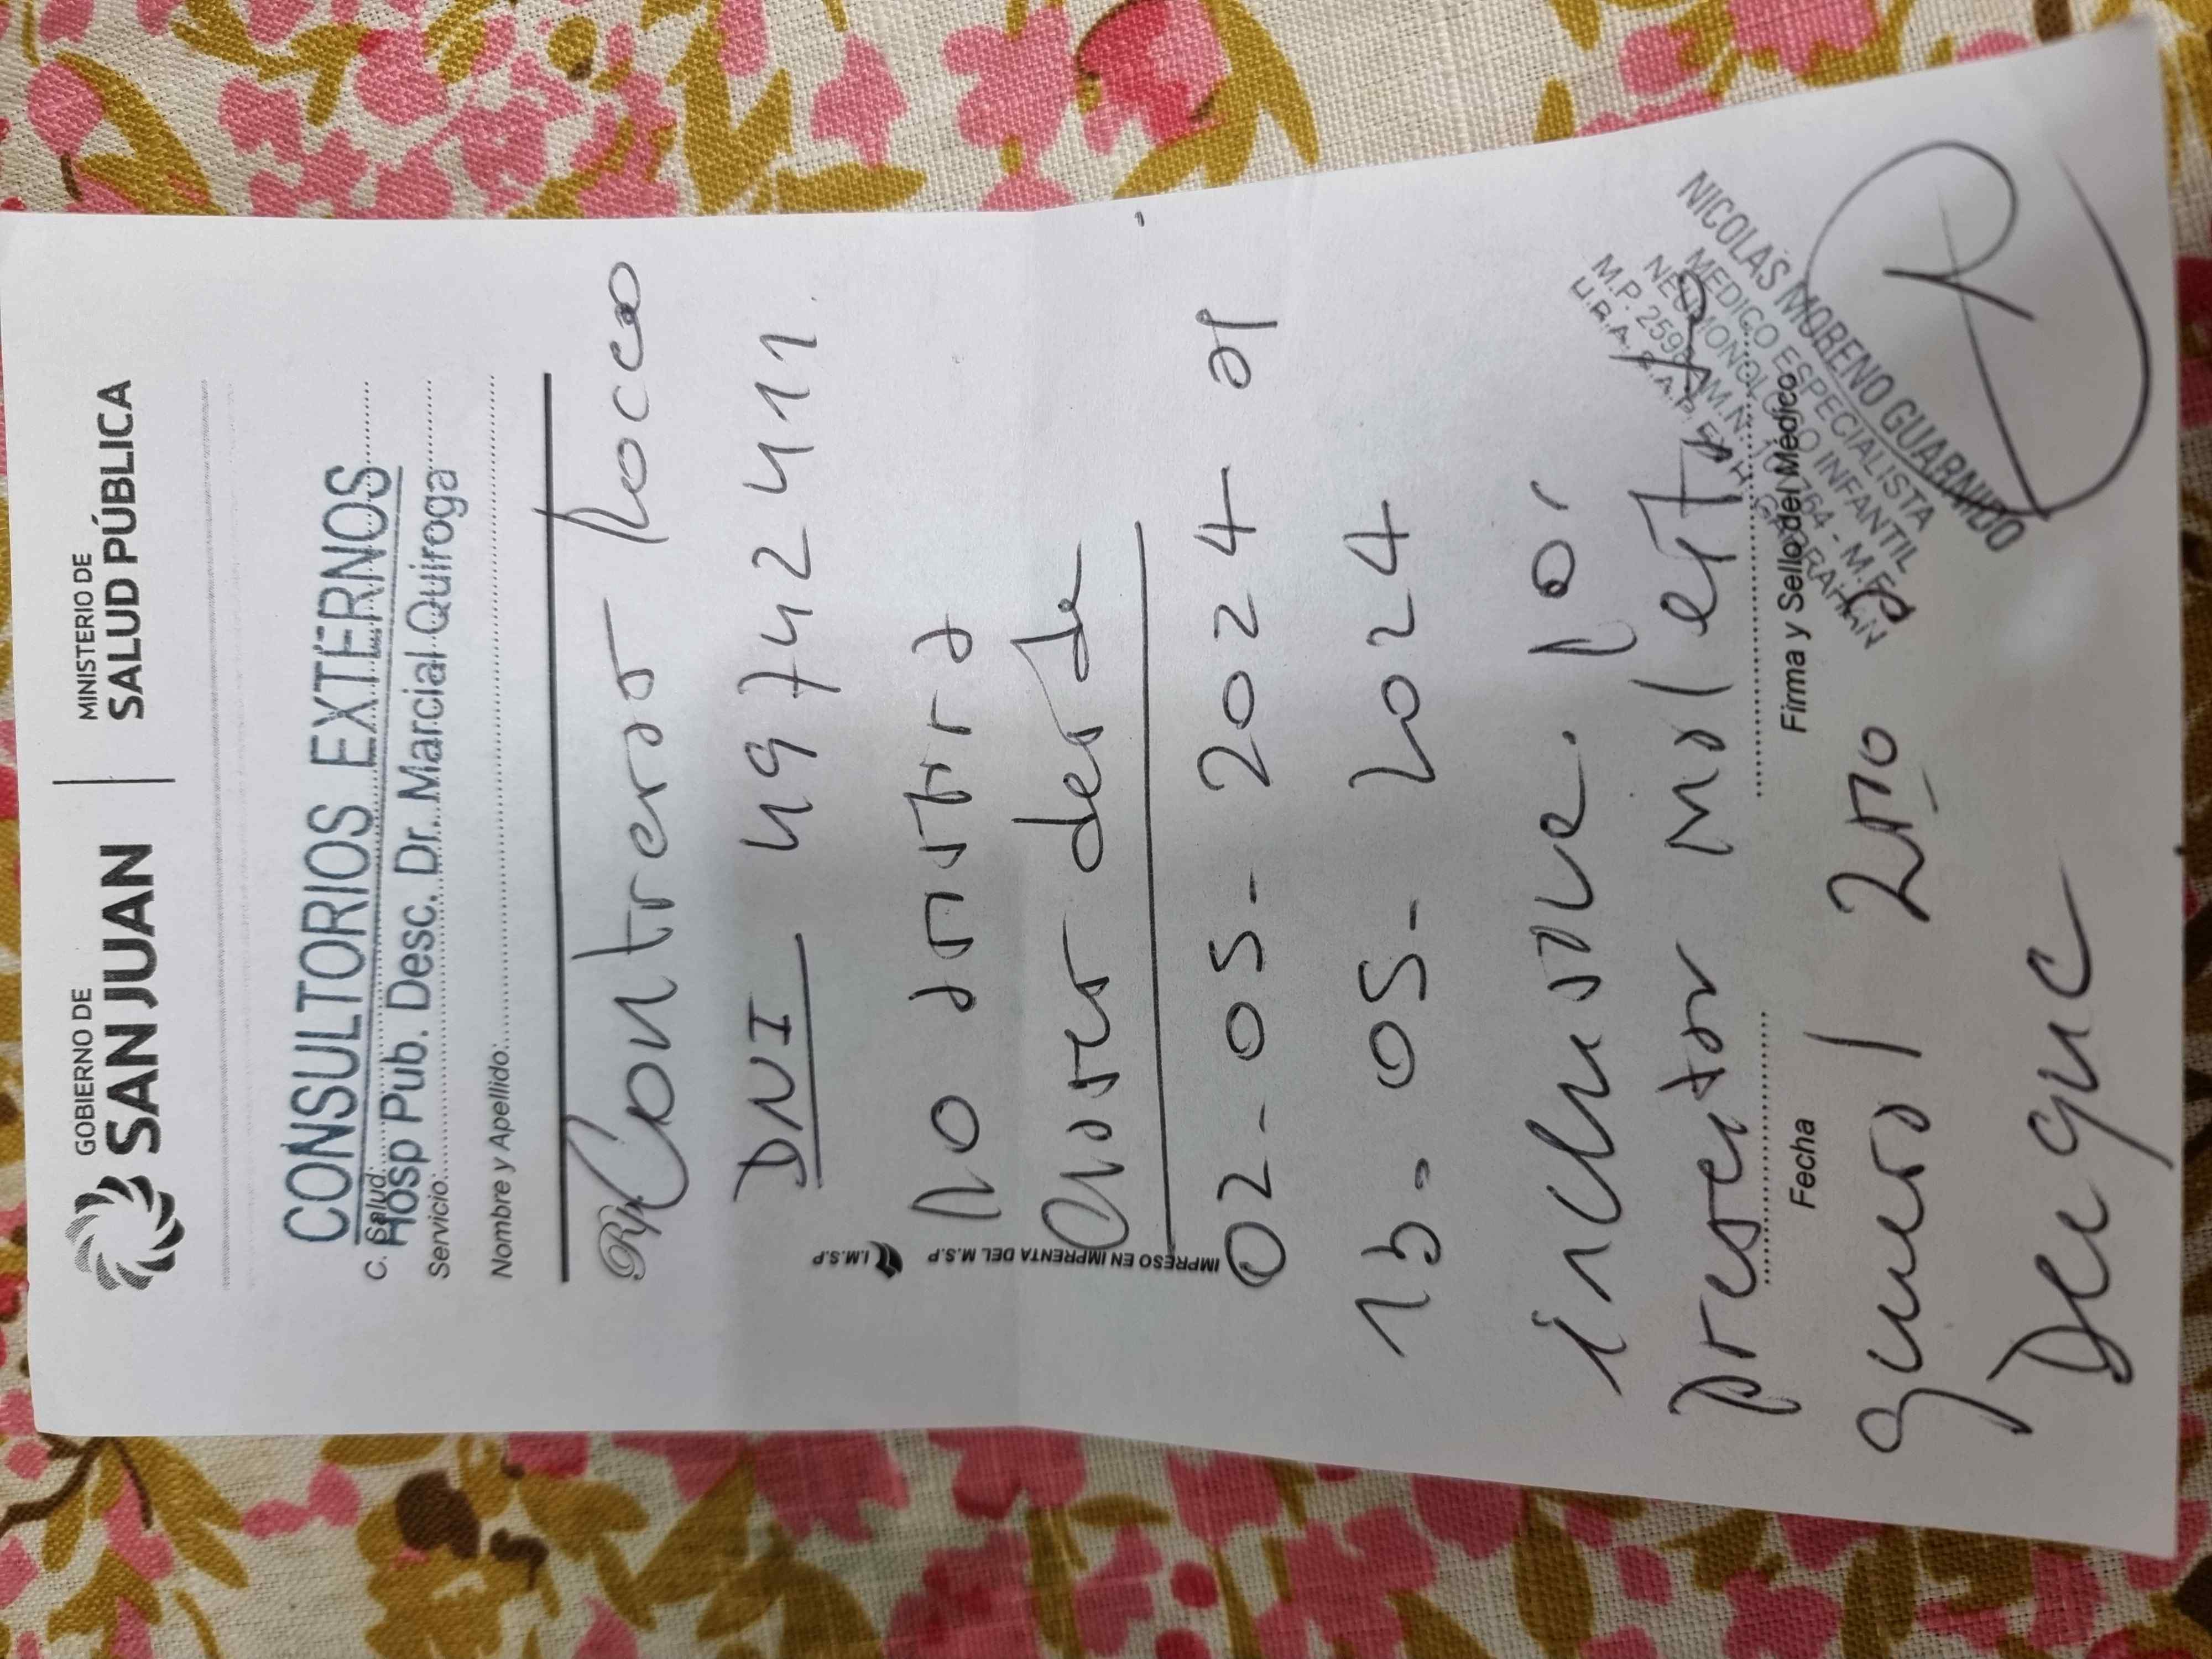 GOBIERNO DE
SAN JUAN
MINISTERIO DE
SALUD PÚBLICA
CONSULTORIOS EXTERNOS
C. Salud:
Hosp Pub. Desc. Dr. Marcial Quiroga
Servicio:
Nombre y Apellido:
Rp/
Contreras Rocco
DNI 49742411
No asistirá
Clases desde
02-05-2024 al
13-05-2024
inclusive. Por
presentar malestar
Firma y Sello del Médico
Fecha
general 2rio a
Dengue
I.M.S.P
IMPRESO EN IMPRENTA DEL M.S.P
NICOLAS MORENO GUARNIDO
MEDICO ESPECIALISTA
NEUMONOLOGO INFANTIL